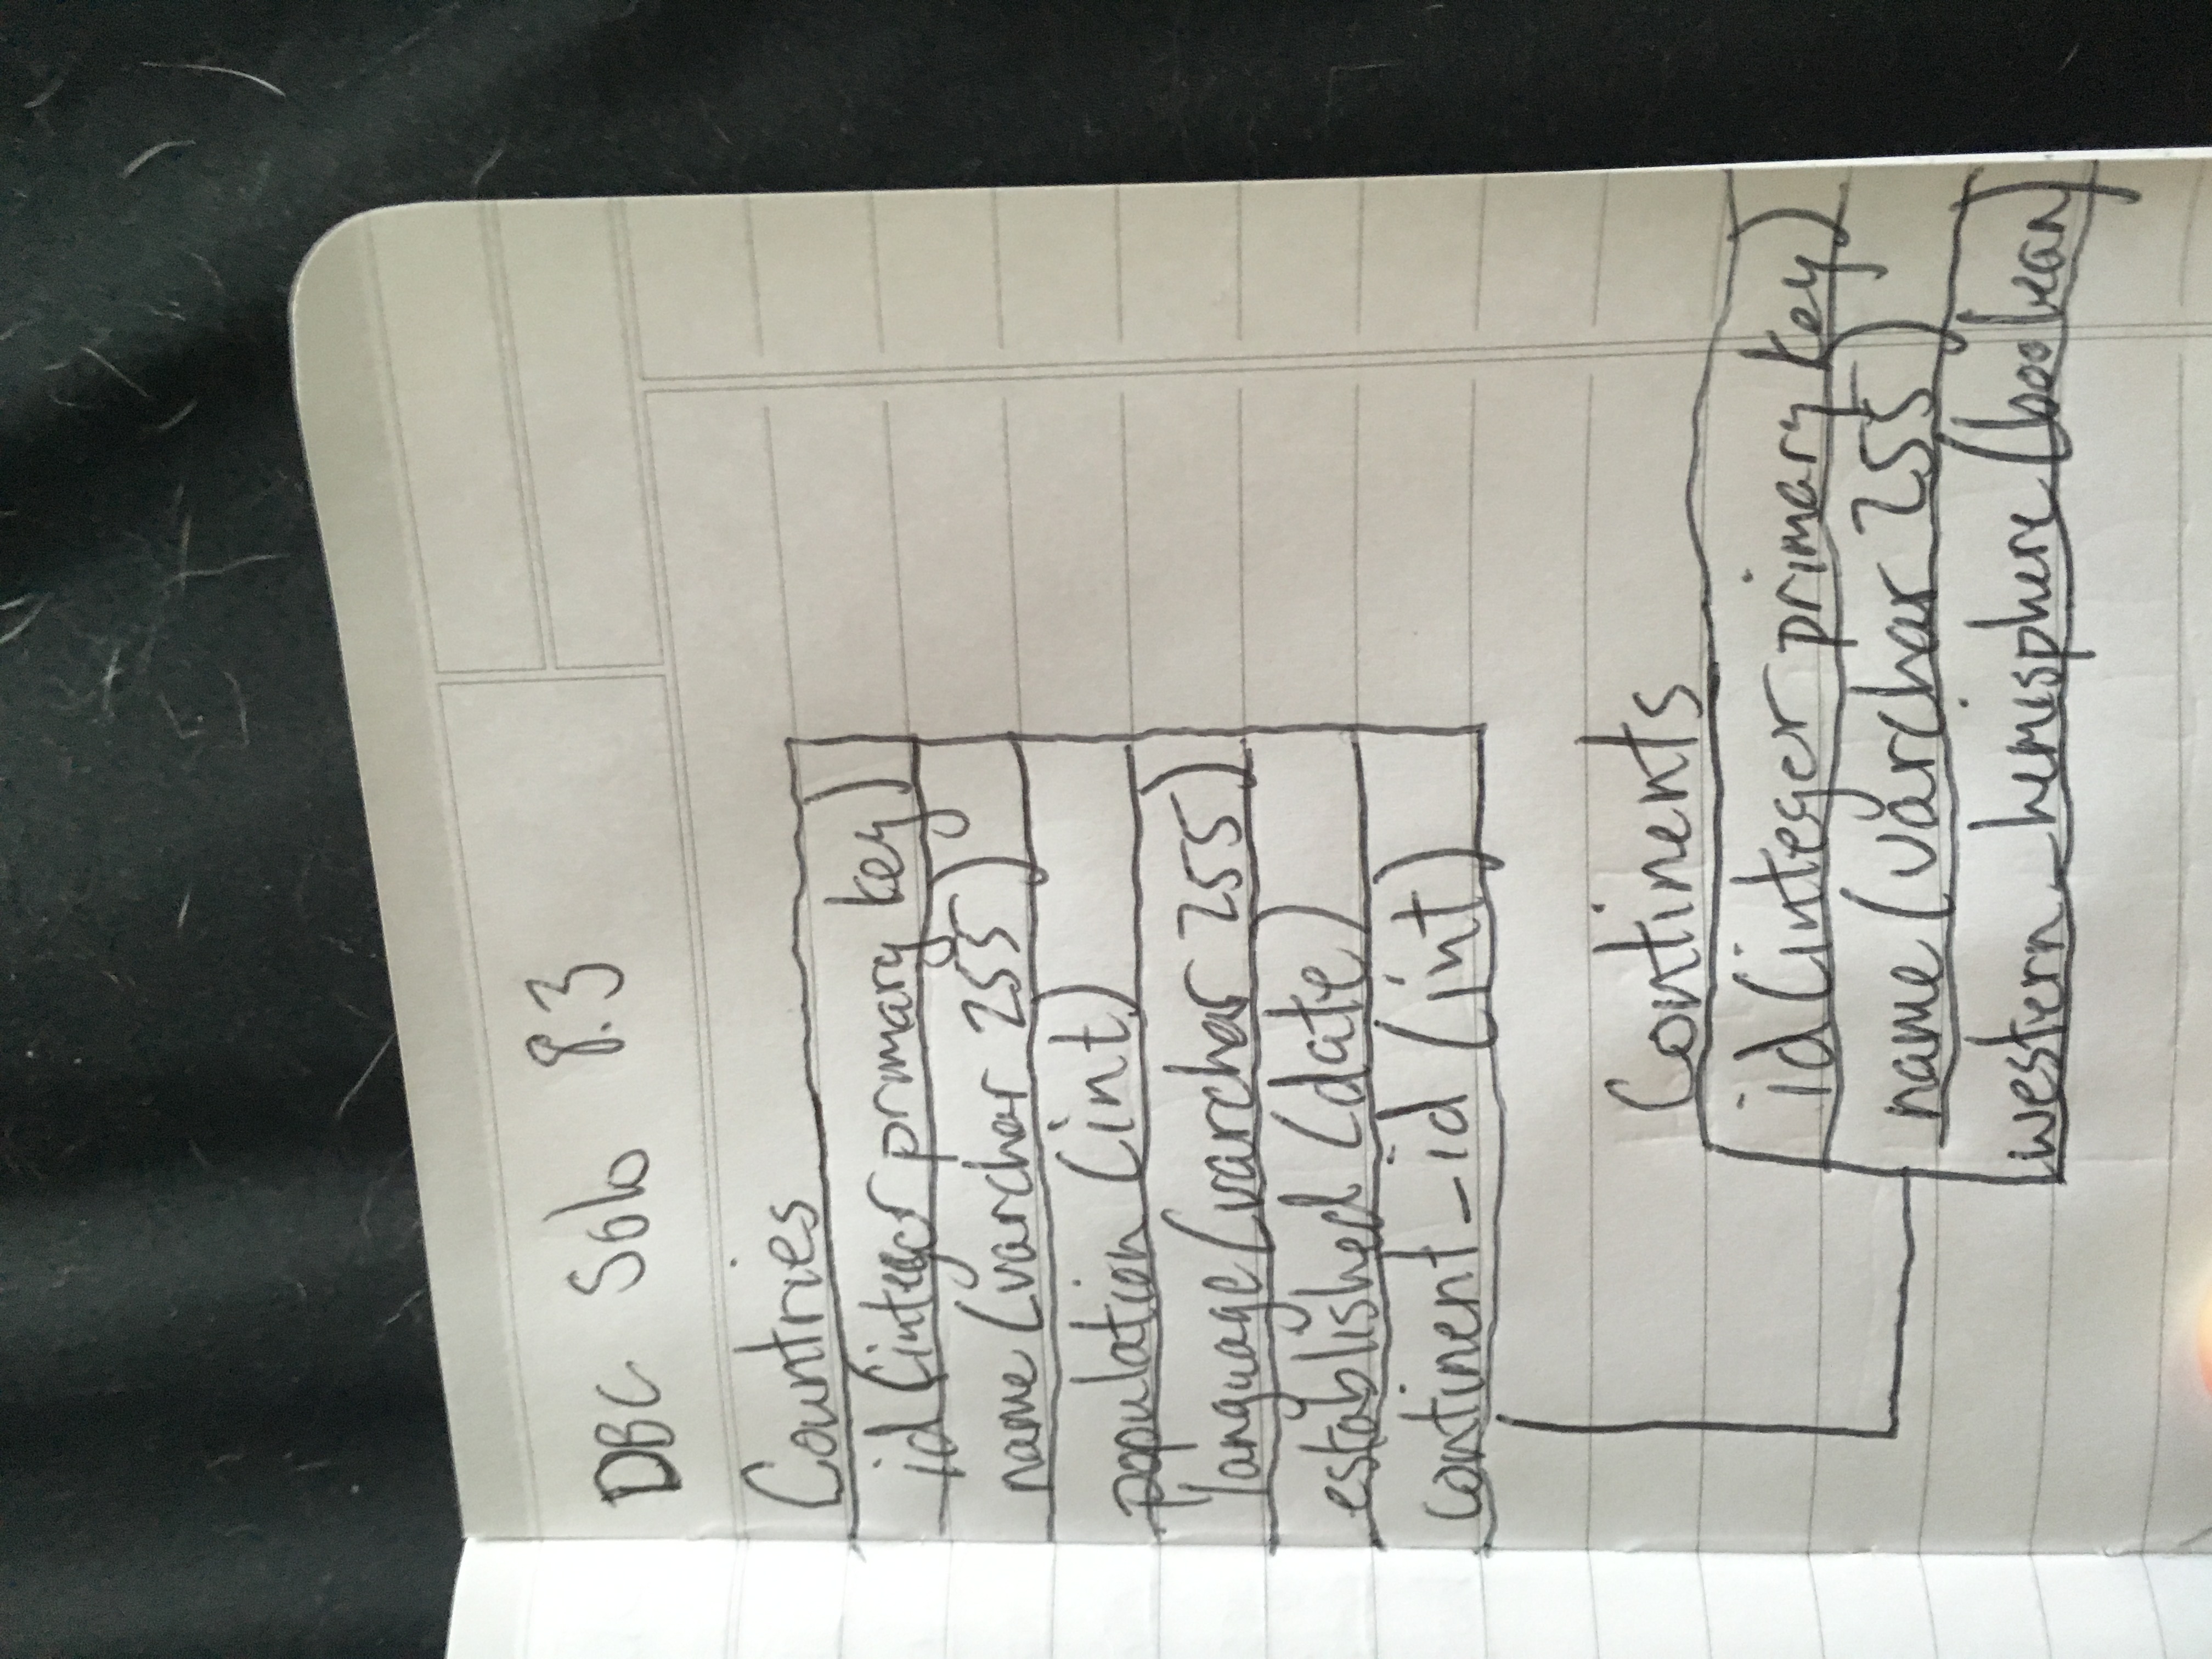 DBC Solo 8.3
Countries
id (integer primary key)
name (varchar 255)
population (int)
language (varchar 255)
established (date)
continent_id (int)
Continents
id (integer primary key)
name (varchar 255)
western_hemisphere (boolean)